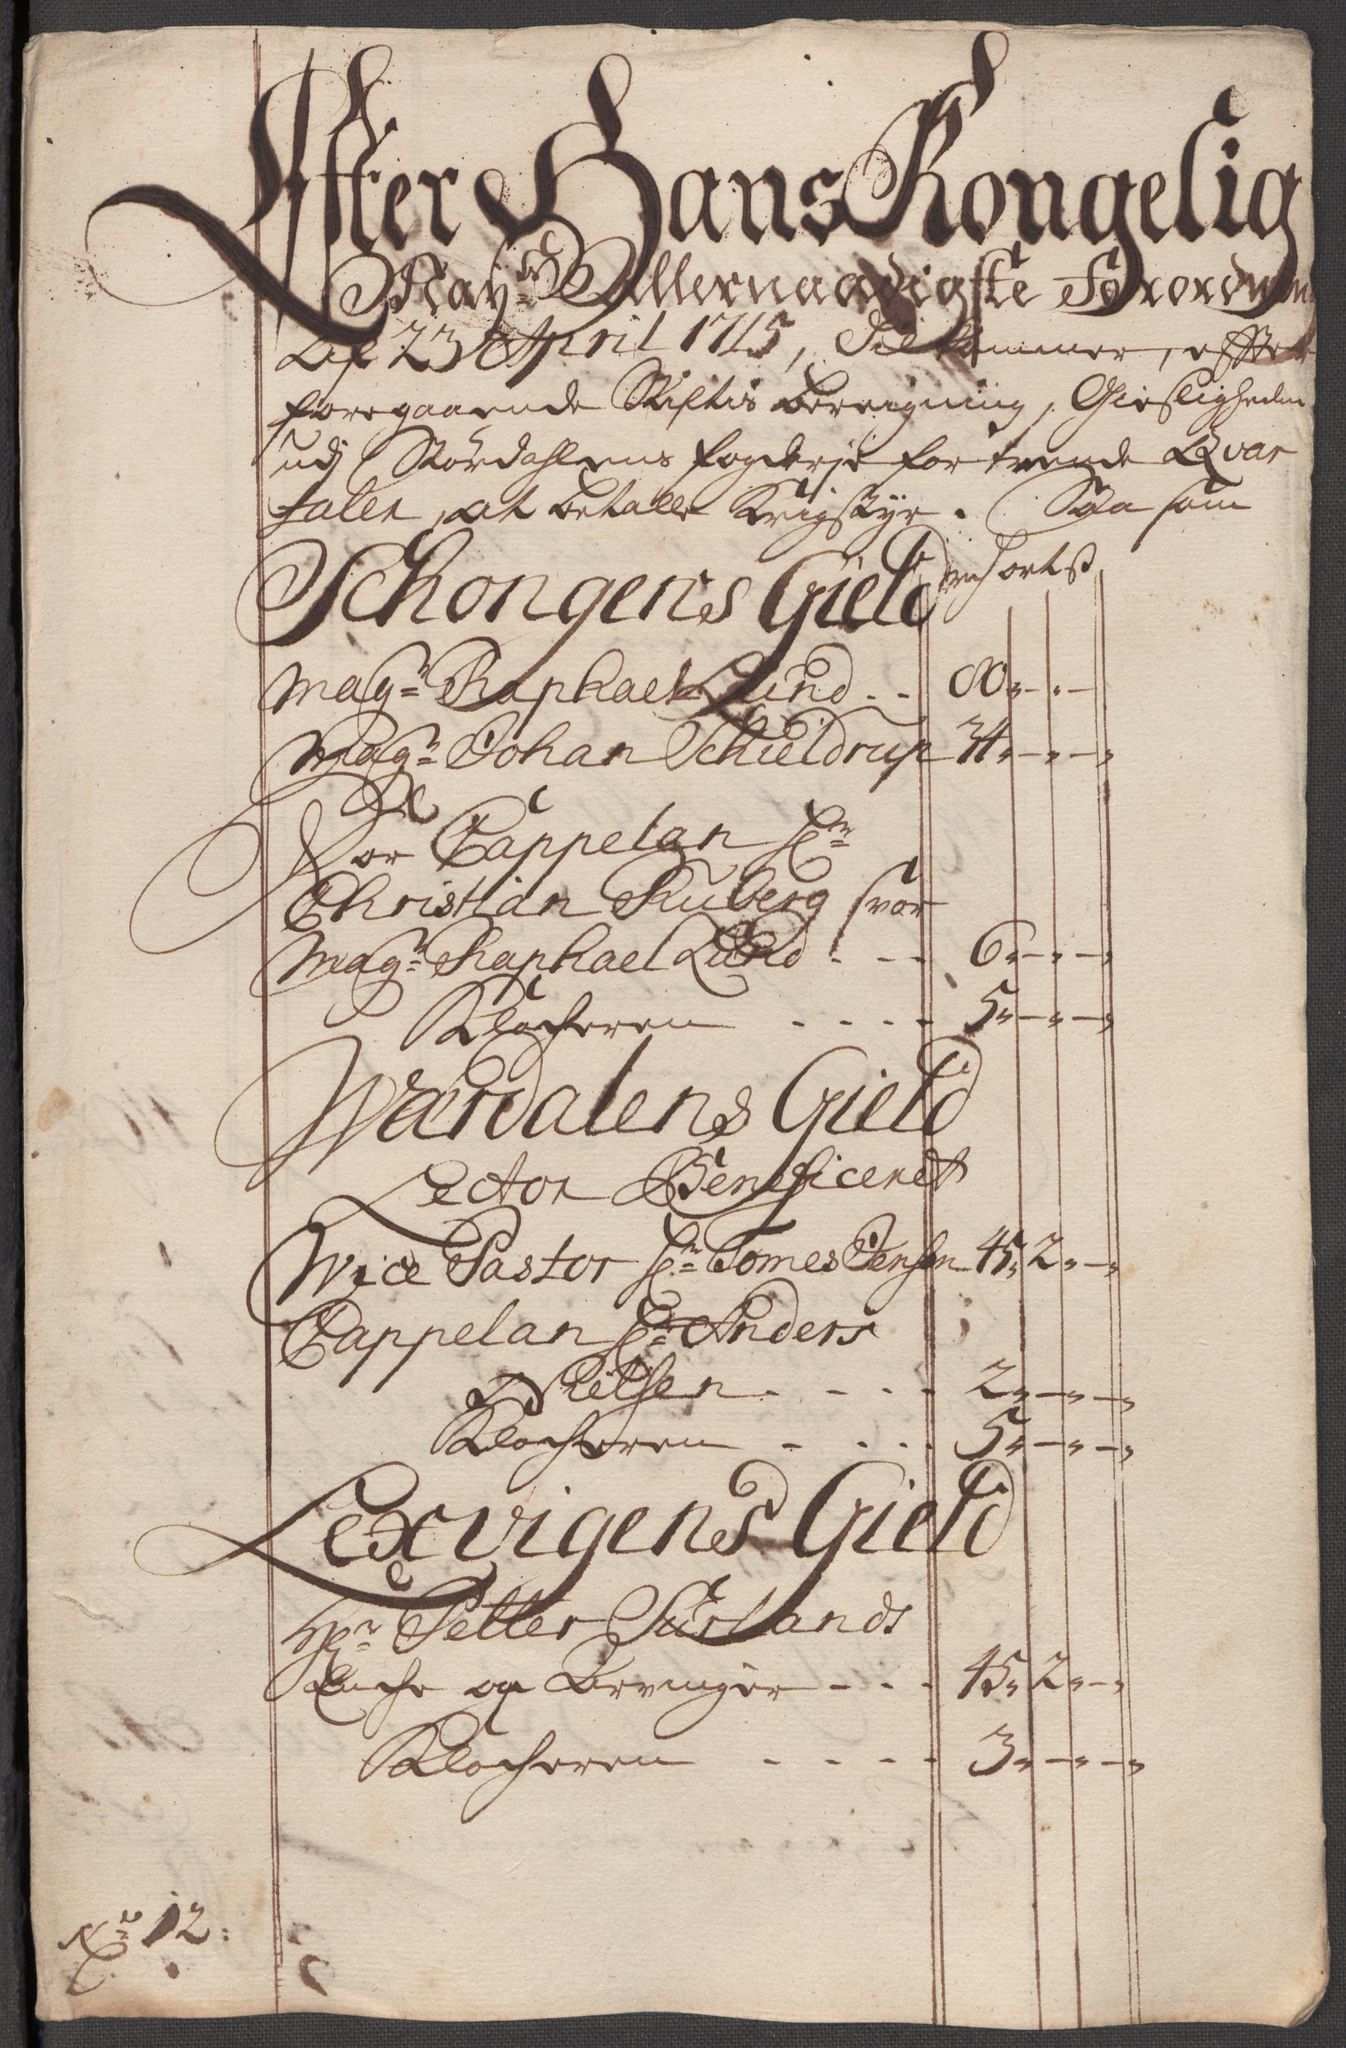 Effter Hans Kongelig
May:ts Allernaadigste Forordning
Af 23 April 1715, Tilkommer, effter
foregaaende Stiftis beregning, Giestligheden
udj Størdahlens fogderje for trende Qvar
taler, at betalle Krigstyr. Saa som
Schongens Gield rdr ort s
Mag:r Raphael Lund .. 80 " - " -
Mag:r Johan Schieldrup 34 " - " - "
For Cappelan Hr:
Christian Ruberg svar
Mag:r Raphael Lund . - - 6 " - " - "
Klocheren . - - - - 5 " - " - "
Wærdalens Gield
Lector Beneficeret
Wice Pastor Hr: Tomes Jensen 45 " 2 " - "
Cappelan Hr: Anders
Nielsen . - - - - 2 " - " - "
Klocheren - . . . 5 " - " - "
Lexvigens Gield
Hr: Petter Jurlands
Enche og Arvinger - - - 45 " 2 " - "
Klocheren - - - - - 3 " - " - "
No: 12: